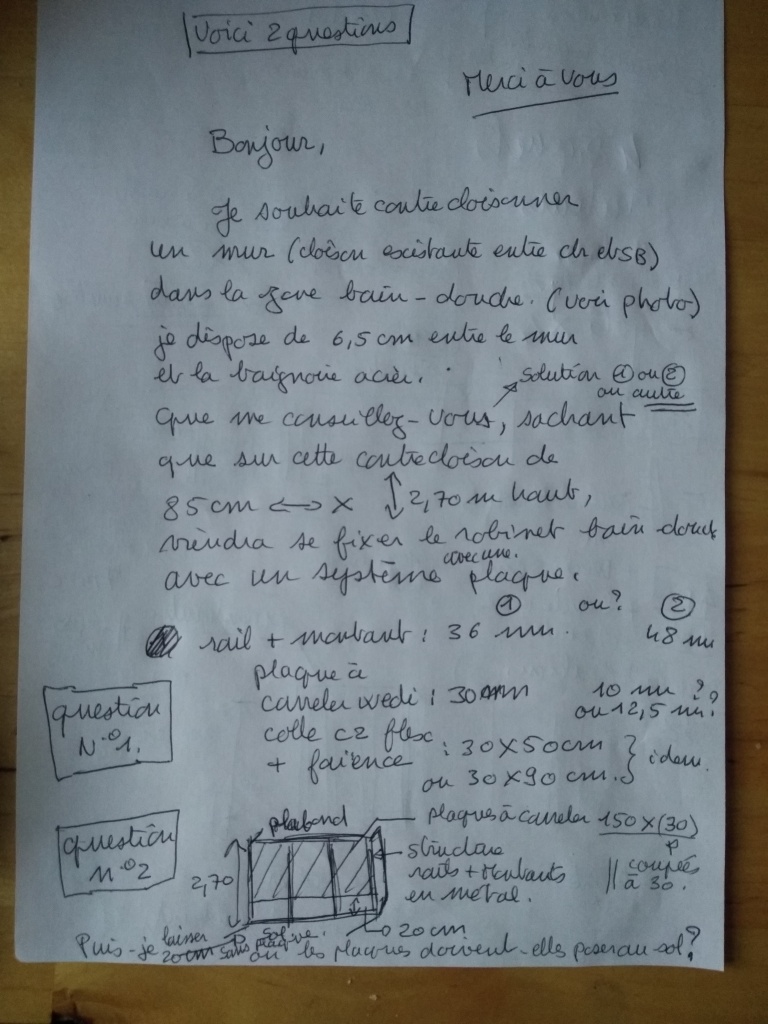 Voici 2 questions
Merci à vous
Bonjour,
Je souhaite contre cloisonner
un mur (cloison existante entre ch et SB)
dans la zone bain-douche. (voir photo)
je dispose de 6,5 cm entre le mur
et la baignoire acier.
solution ① ou ②
ou autre
Que me conseillez-vous, sachant
que sur cette contrecloison de
85 cm ↔ x ↕ 2,70 m haut,
viendra se fixer le robinet bain douche
avec un système avec une plaque.
① ou? ②
rail + montant : 36 mm. 48 mm
plaque à
carreler wedi : 30 mm 10 mm ?
ou 12,5 mm ?
question
N°1.
colle C2 flex
+ faïence : 30x50 cm } idem.
ou 30x90 cm.
question
n°2
plafond
plaques à carreler 150 x (30)
coupées
à 30.
structure
rails + montants
en métal.
2,70
20 cm
Puis-je laisser
20 cm sans plaque
ou les plaques doivent-elles poser au sol ?